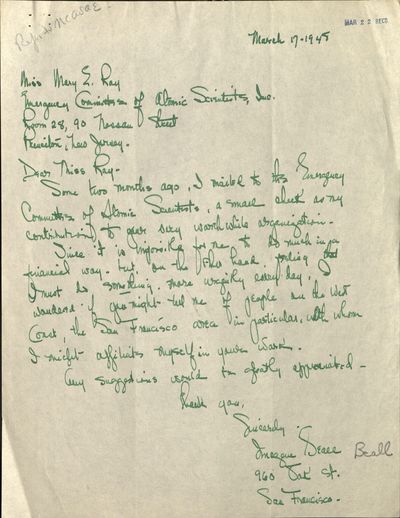 MAR 22 RECD
March 17-1948
Miss Mary E. Ray
Emergency Committee of Atomic Scientists, Inc.
Room 28, 90 Nassau Street
Princeton, New Jersey.
Dear Miss Ray-
Some two months ago, I mailed to the Emergency
Committee of Atomic Scientists, a small check as my
contribution to your very worth while organization-
Since it is impossible for me to do much in a
financial way- but, on the other hand, feeling that
I must do something, more urgently every day, I
wondered if you might tell me of people on the West
Coast, the San Francisco area in particular, with whom
I might affiliate myself in your work-
Any suggestions would be greatly appreciated-
Thank you,
Sincerely-
Imogene Beall Beall
960 Oak St.
San Francisco-